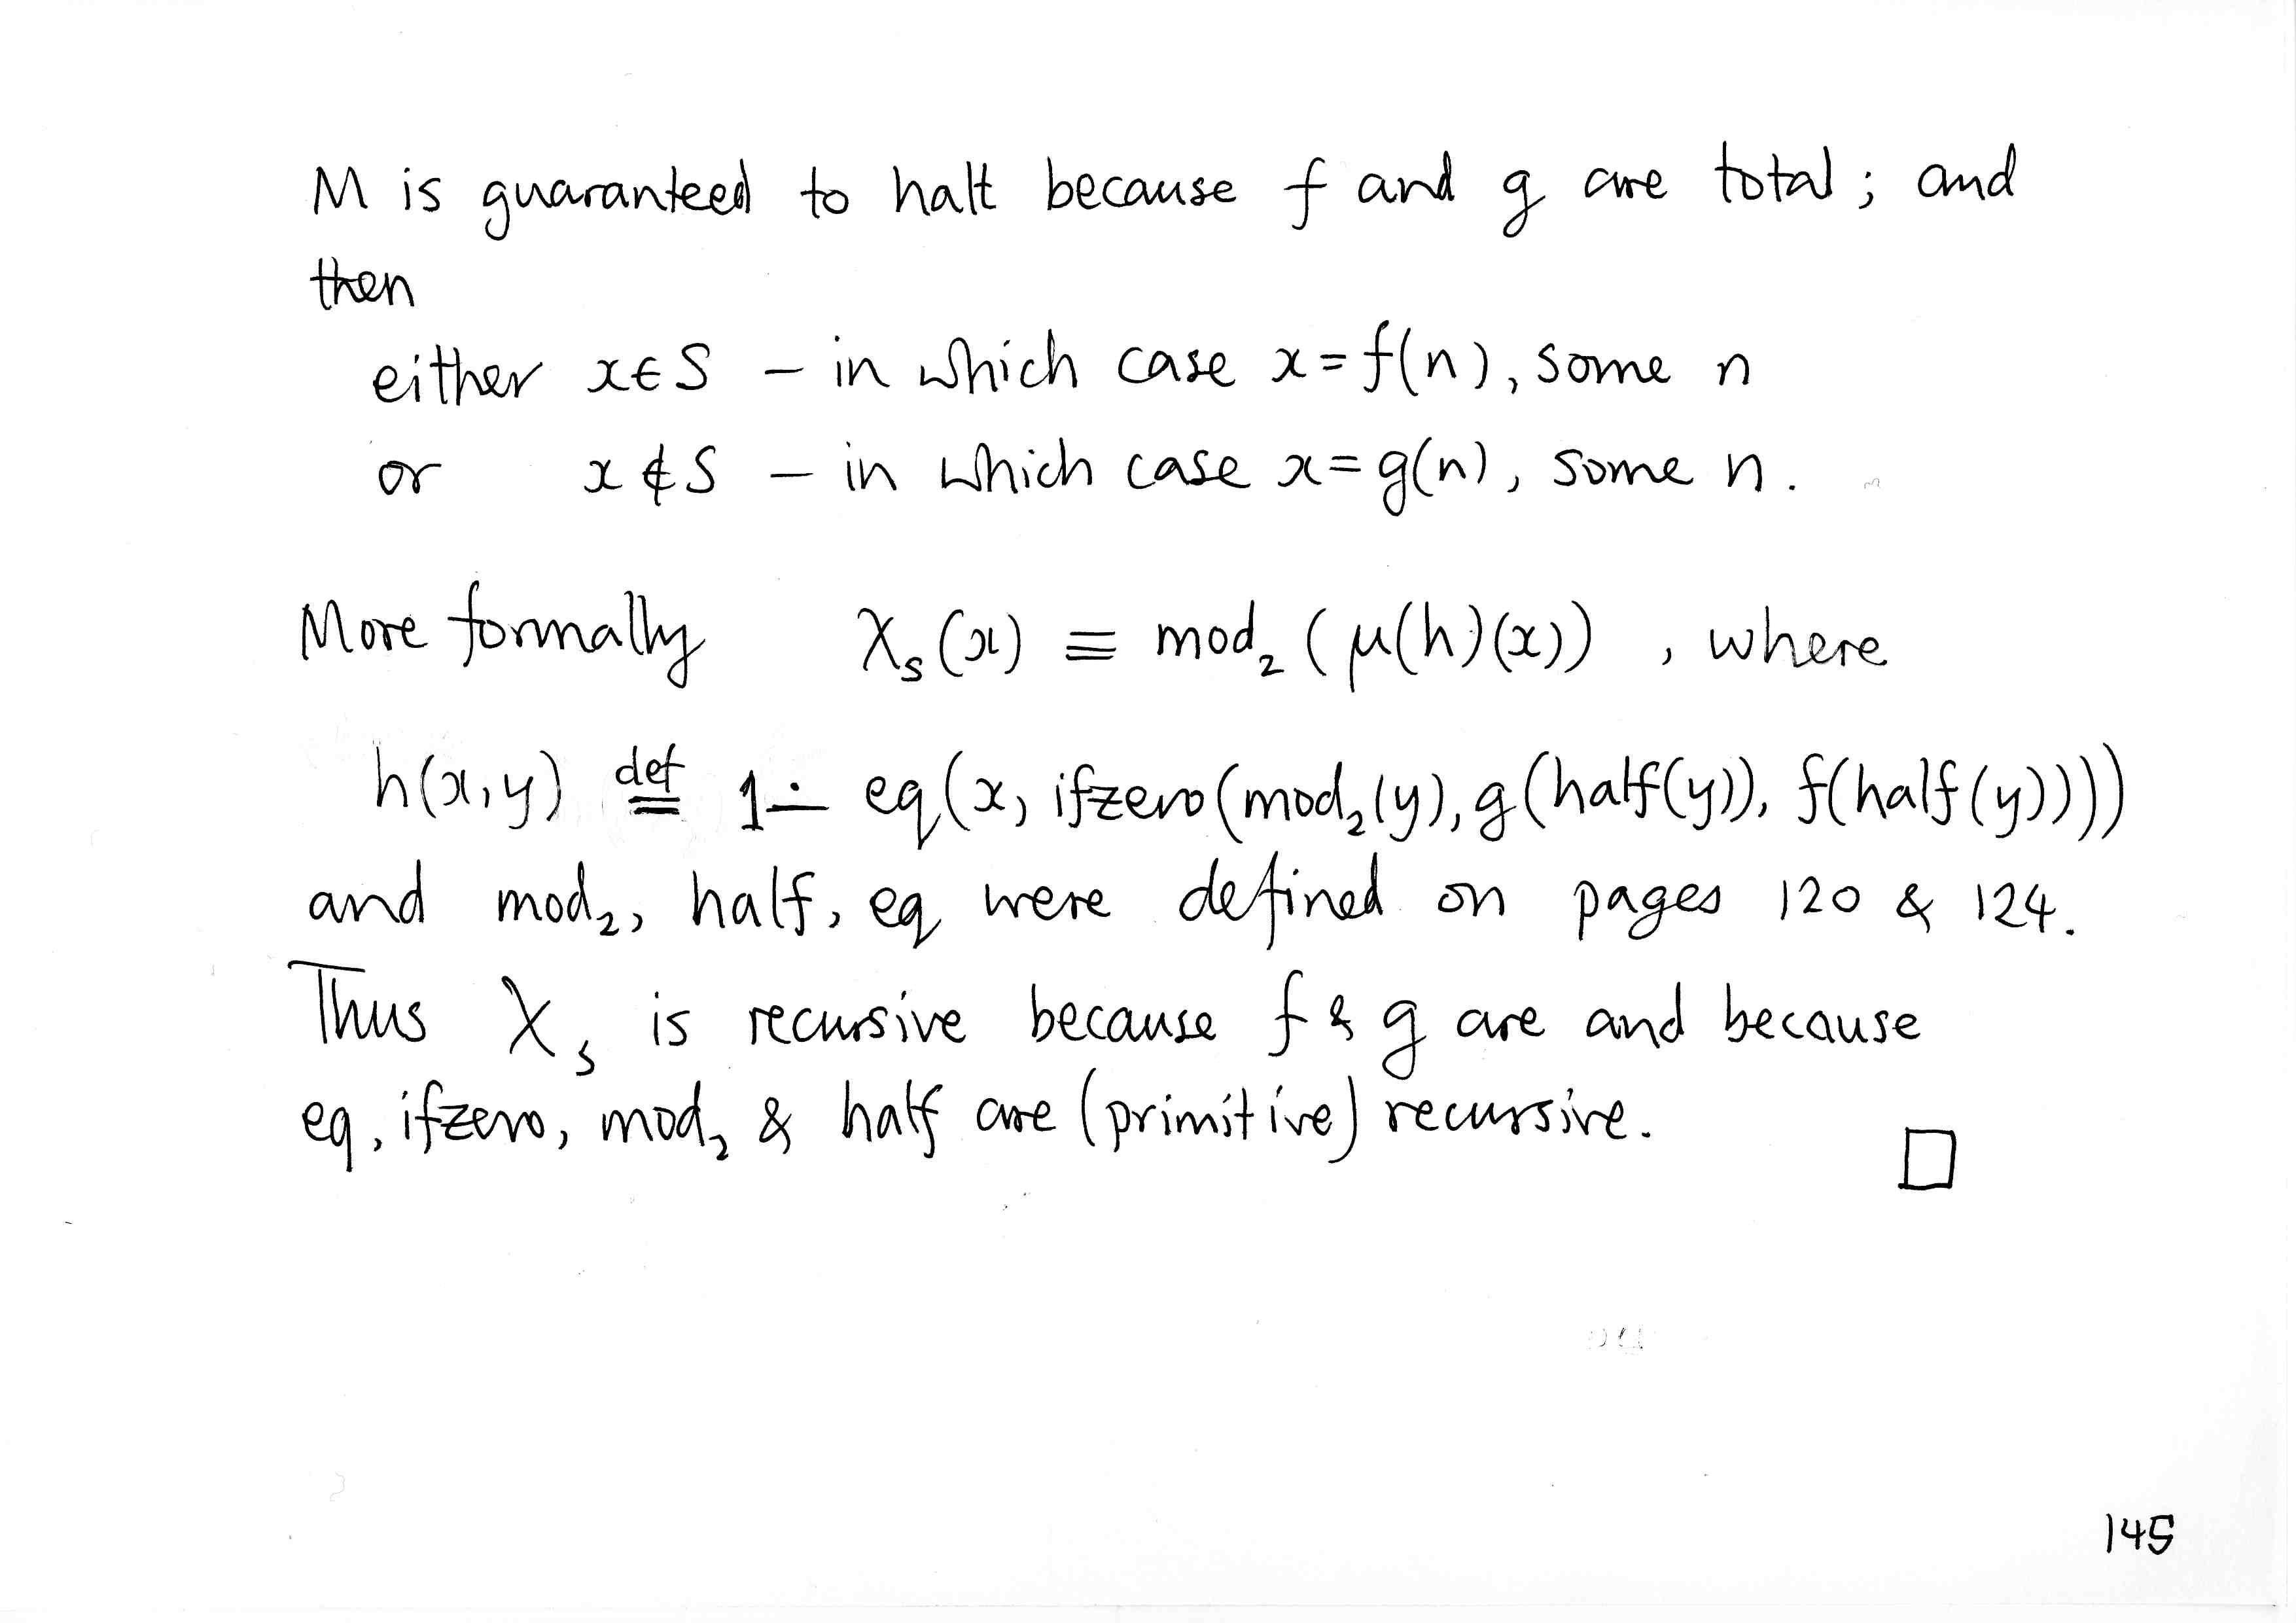 M is guaranteed to halt because f and g are total; and
then
either x∈S – in which case x=f(n), some n
or x∉S – in which case x=g(n), some n.
More formally χ_S(x) ≡ mod₂(μ(h)(x)) , where
h(x,y) def= 1∸ eq(x, ifzero(mod₂(y), g(half(y)), f(half(y))))
and mod₂, half, eq were defined on pages 120 & 124.
Thus χ_S is recursive because f & g are and because
eq, ifzero, mod₂ & half are (primitive) recursive.
□
145